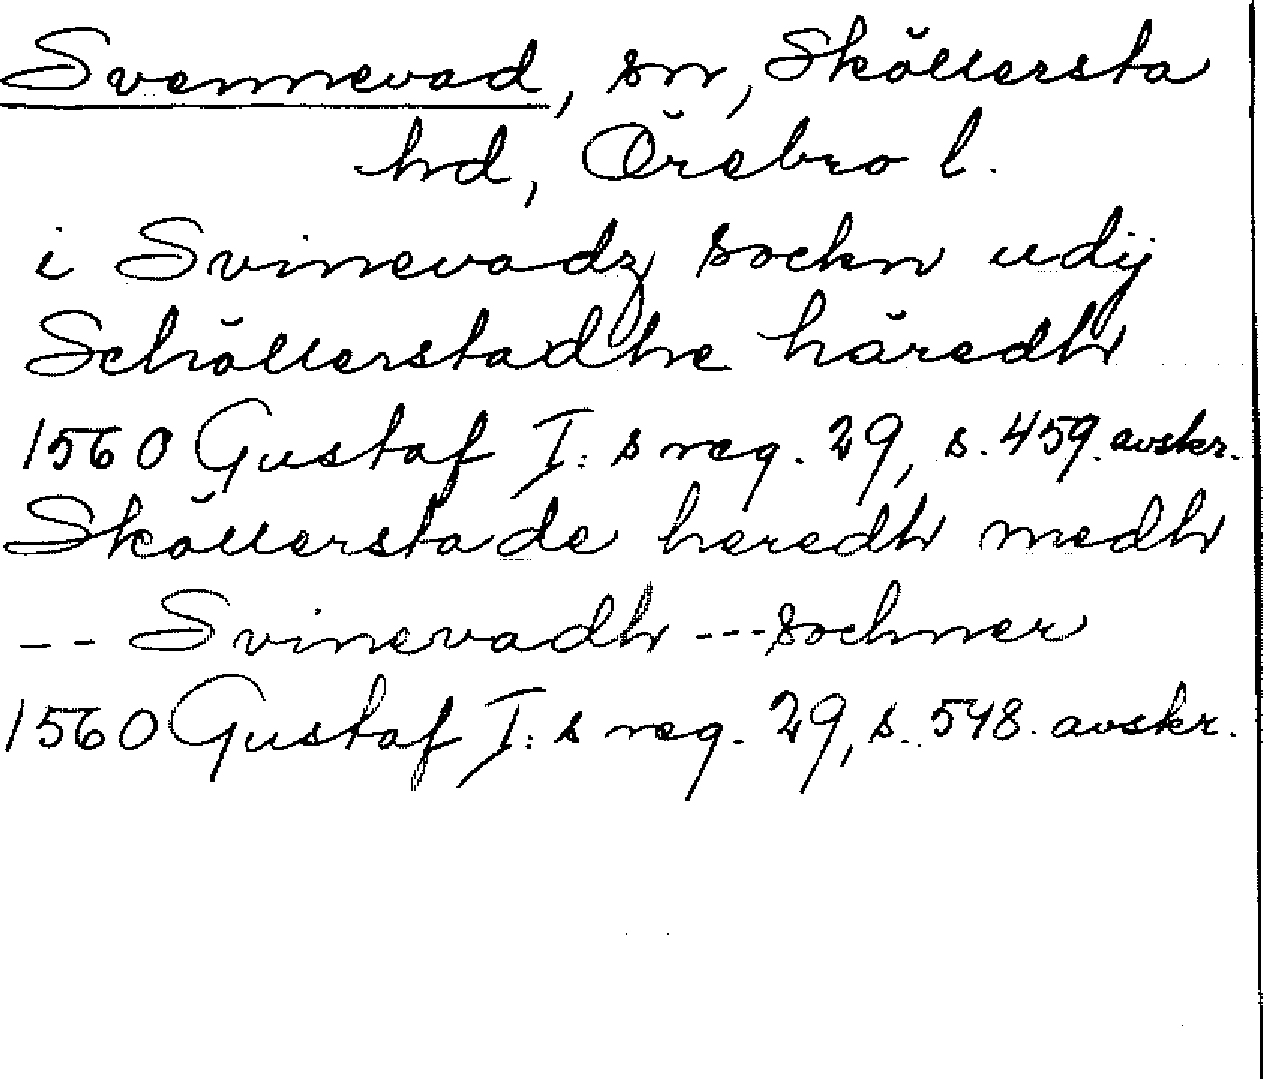 Svennevad, sn, Sköllersta
hd, Örebro l.
i Svinevadz sockn udij
Schöllerstadhe häredh
1560 Gustaf I:s reg. 29, s. 459. avskr.
Sköllerstade heredh medh
-- Svinevadh --- sochner
1560 Gustaf I:s reg. 29, s. 548. avskr.